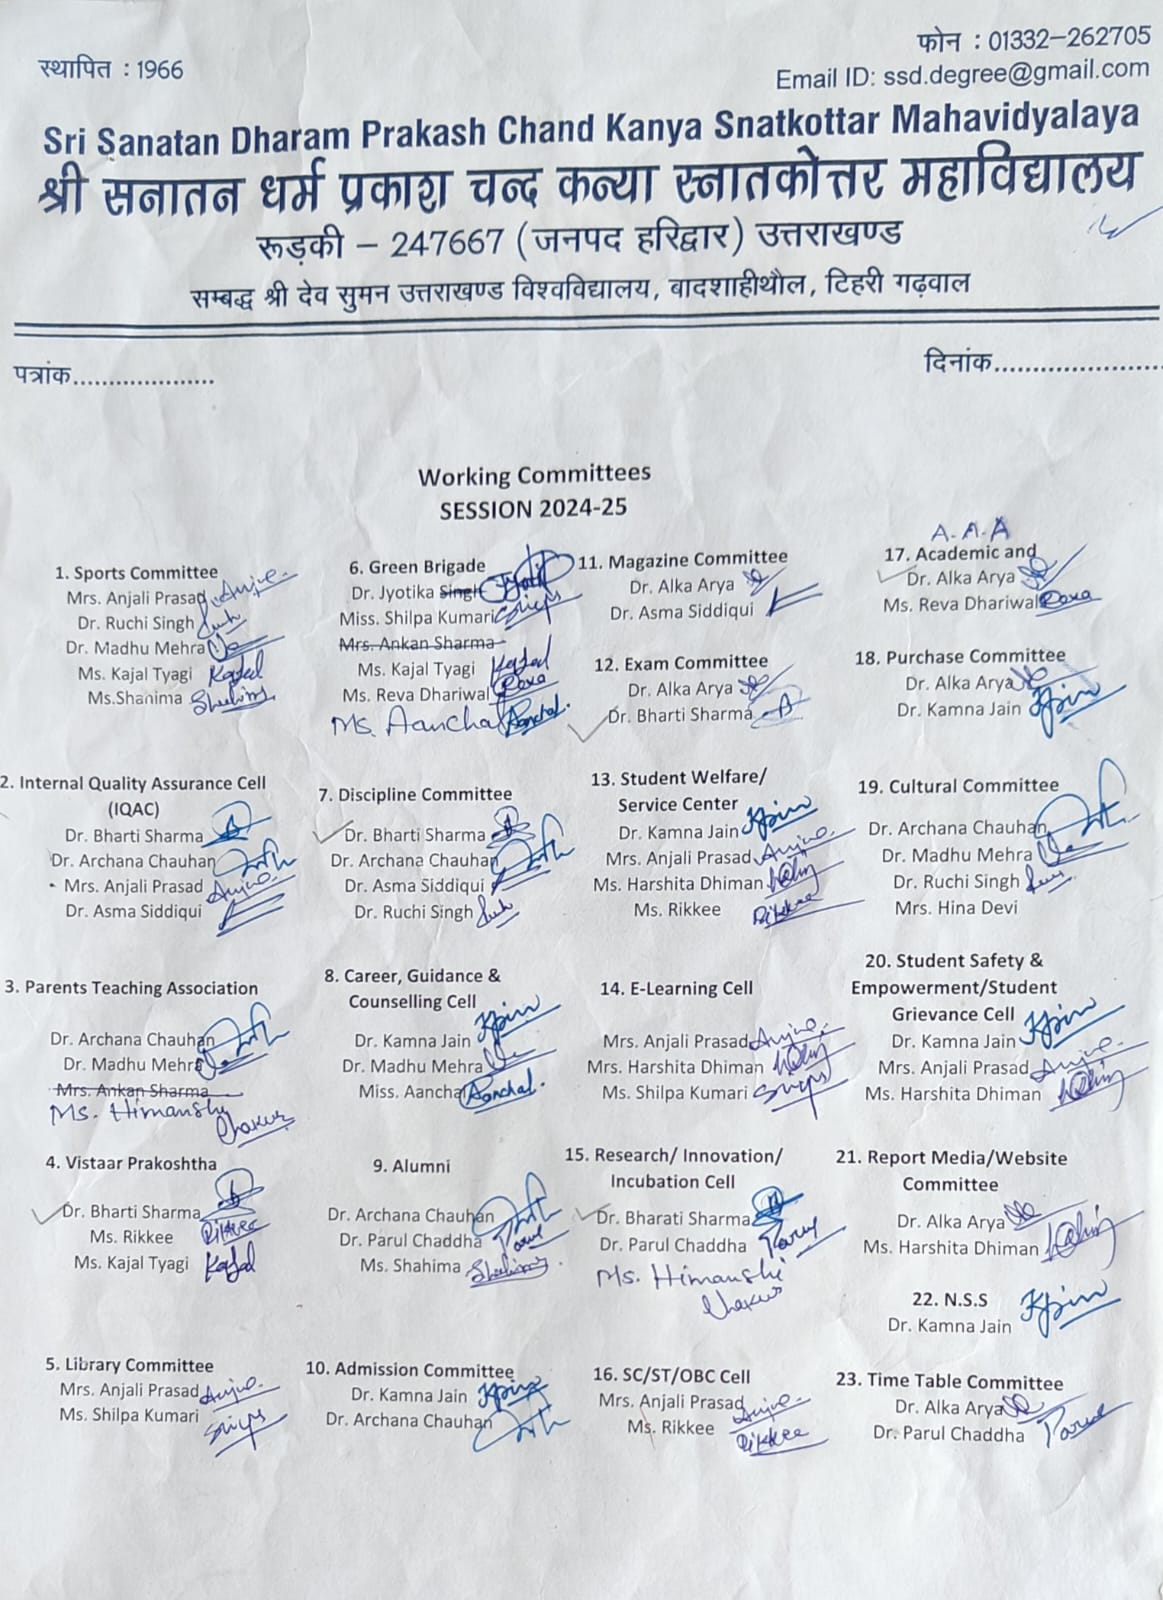 स्थापित : 1966
फोन : 01332-262705
Email ID: ssd.degree@gmail.com
Sri Sanatan Dharam Prakash Chand Kanya Snatkottar Mahavidyalaya
श्री सनातन धर्म प्रकाश चन्द कन्या स्नातकोत्तर महाविद्यालय
रूड़की – 247667 (जनपद हरिद्वार) उत्तराखण्ड
सम्बद्ध श्री देव सुमन उत्तराखण्ड विश्वविद्यालय, बादशाहीथौल, टिहरी गढ़वाल
पत्रांक....................
दिनांक.......................
Working Committees
SESSION 2024-25
1. Sports Committee
Mrs. Anjali Prasad
Dr. Ruchi Singh
Dr. Madhu Mehra
Ms. Kajal Tyagi Kajal
Ms.Shanima
2. Internal Quality Assurance Cell
(IQAC)
Dr. Bharti Sharma
Dr. Archana Chauhan
Mrs. Anjali Prasad
Dr. Asma Siddiqui
3. Parents Teaching Association
Dr. Archana Chauhan
Dr. Madhu Mehra
Mrs. Ankan Sharma
Ms. Himanshi
4. Vistaar Prakoshtha
Dr. Bharti Sharma
Ms. Rikkee Rikkee
Ms. Kajal Tyagi Kajal
5. Library Committee
Mrs. Anjali Prasad
Ms. Shilpa Kumari
6. Green Brigade
Dr. Jyotika Singh
Miss. Shilpa Kumari
Mrs. Ankan Sharma
Ms. Kajal Tyagi Kajal
Ms. Reva Dhariwal
Ms. Aanchal Aanchal.
7. Discipline Committee
Dr. Bharti Sharma
Dr. Archana Chauhan
Dr. Asma Siddiqui
Dr. Ruchi Singh
8. Career, Guidance &
Counselling Cell
Dr. Kamna Jain
Dr. Madhu Mehra
Miss. Aanchal Aanchal.
9. Alumni
Dr. Archana Chauhan
Dr. Parul Chaddha Parul
Ms. Shahima
10. Admission Committee
Dr. Kamna Jain
Dr. Archana Chauhan
11. Magazine Committee
Dr. Alka Arya
Dr. Asma Siddiqui
12. Exam Committee
Dr. Alka Arya
Dr. Bharti Sharma
13. Student Welfare/
Service Center
Dr. Kamna Jain
Mrs. Anjali Prasad
Ms. Harshita Dhiman
Ms. Rikkee Rikkee
14. E-Learning Cell
Mrs. Anjali Prasad
Mrs. Harshita Dhiman
Ms. Shilpa Kumari
15. Research/ Innovation/
Incubation Cell
Dr. Bharati Sharma
Dr. Parul Chaddha Parul
Ms. Himanshi
16. SC/ST/OBC Cell
Mrs. Anjali Prasad
Ms. Rikkee Rikkee
A.A.A
17. Academic and
Dr. Alka Arya
Ms. Reva Dhariwal
18. Purchase Committee
Dr. Alka Arya
Dr. Kamna Jain
19. Cultural Committee
Dr. Archana Chauhan
Dr. Madhu Mehra
Dr. Ruchi Singh
Mrs. Hina Devi
20. Student Safety &
Empowerment/Student
Grievance Cell
Dr. Kamna Jain
Mrs. Anjali Prasad
Ms. Harshita Dhiman
21. Report Media/Website
Committee
Dr. Alka Arya
Ms. Harshita Dhiman
22. N.S.S
Dr. Kamna Jain
23. Time Table Committee
Dr. Alka Arya
Dr. Parul Chaddha Parul